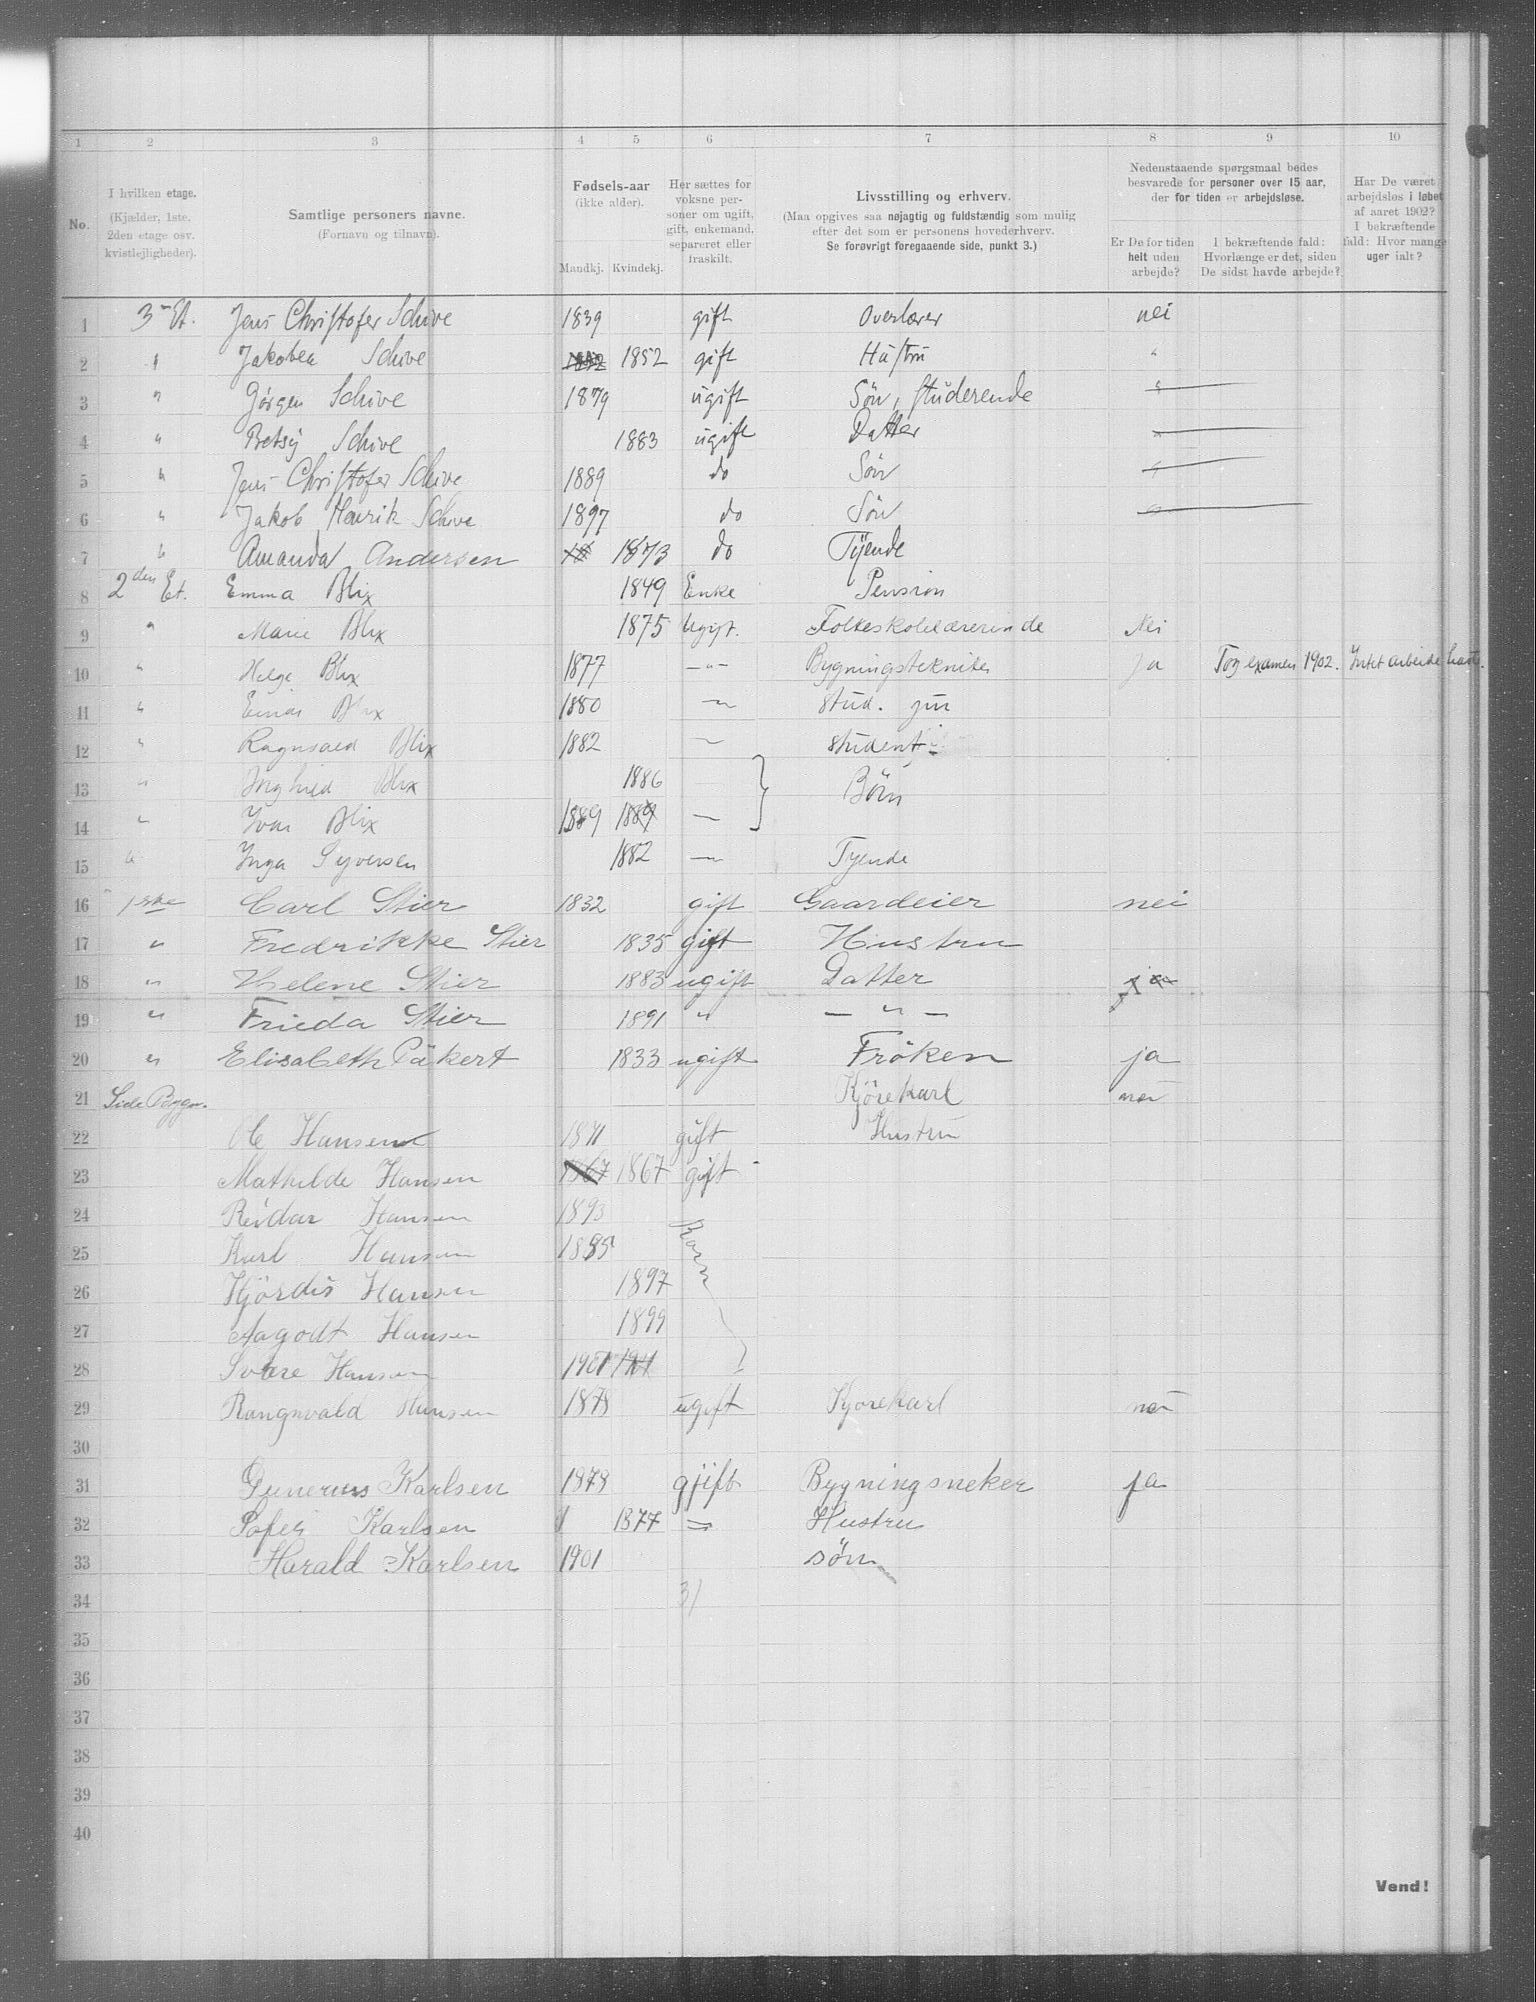 1 2 3 4 5 6 7 8 9 10
No.
I hvilken etage.
(Kjælder, 1ste.
2den etage osv.
kvistlejligheder).
Samtlige personers navne.
(Fornavn og tilnavn).
Fødsels-aar
(ikke alder).
Mandkj. Kvindekj.
Her sættes for
voksne per-
soner om ugift,
gift, enkemand,
separeret eller
fraskilt.
Livsstilling og erhverv.
(Maa opgives saa nøjagtig og fuldstændig som mulig
efter det som er personens hovederhverv.
Se forøvrigt foregaaende side, punkt 3.)
Nedenstaaende spørgsmaal bedes
besvarede for personer over 15 aar,
der for tiden er arbejdsløse.
Er De for tiden
helt uden
arbejde?
I bekræftende fald:
Hvorlænge er det, siden
De sidst havde arbejde?
Har De været
arbejdsløs i løbet
af aaret 1902?
I bekræftende
fald: Hvor mange
uger ialt?
1 3 Et. Jens Christofer Schive 1839 gift Overlærer nei
2 " Jakobea Schive 1852 1852 gift Hustru "
3 " Jørgen Schive 1879 ugift Sön, studerende "
4 " Betsy Schive 1883 ugift Datter "
5 " Jens Christofer Schive 1889 do Sön "
6 " Jakob Henrik Schive 1897 do Sön "
7 " Amanda Andersen 18 1873 do Tyende
8 2den Et. Emma Blix 1849 Enke Pension
9 " Marie Blix 1875 Ugift. Folkeskolelærerinde Nei
10 " Helge Blix 1877 -"- Bygningstekniker Ja Tog examen 1902. Intet arbeide havt.
11 " Einar Blix 1880 " stud. jur
12 " Ragnvald Blix 1882 " student
13 " Inghild Blix 1886 } Börn
14 " Ivar Blix 1889 1889 "
15 " Inga Syversen 1882 " Tyende
16 1ste Carl Stier 1832 gift Gaardeier nei
17 " Fredrikke Stier 1835 gift Hustru
18 " Helene Stier 1883 ugift Datter ja
19 " Frieda Stier 1891 " — " —
20 " Elisabeth Päkert 1833 ugift Fröken ja
21 Side Bygn. Kjörekarl nei
22 Ole Hansen 1871 gift Hustru
23 Mathilde Hansen 1867 1867 gift
24 Reidar Hansen 1893 Barn
25 Karl Hansen 1895
26 Hjördis Hansen 1897
27 Aagodt Hansen 1899
28 Sverre Hansen 1901 1901
29 Rangnvald Hansen 1878 ugift Kjorekarl nei
30
31 Gunerius Karlsen 1878 gjift Bygningsneker ja
32 Karlsen 1877 = Hustru
33 Harald Karlsen 1901 søn
34 31
35
36
37
38
39
40
Vend!